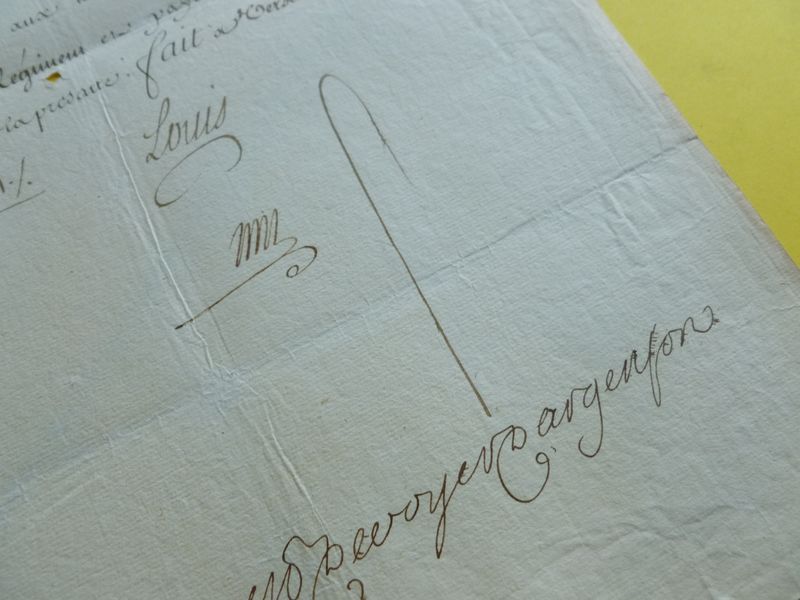 aux
Régiment en
la presante. fait a Vers
Louis
Devoyer Dargenson